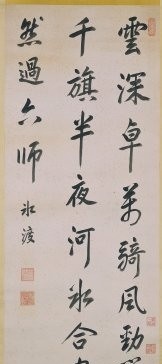 雲深卓萬騎風勁
千旗半夜河氷合
然過六師 氷渡